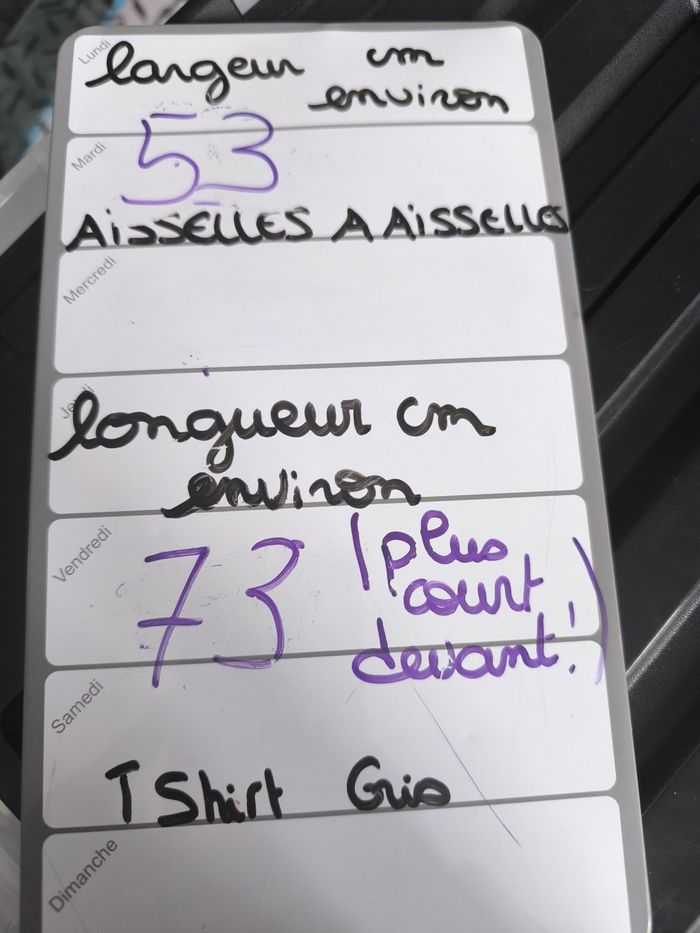 Lundi
largeur cm
environ
Mardi
53
AiSSELLES A AiSSELLES
Mercredi
Jeudi
longueur cm
environ
Vendredi
73 (plus
court
devant!)
Samedi
T Shirt Gris
Dimanche